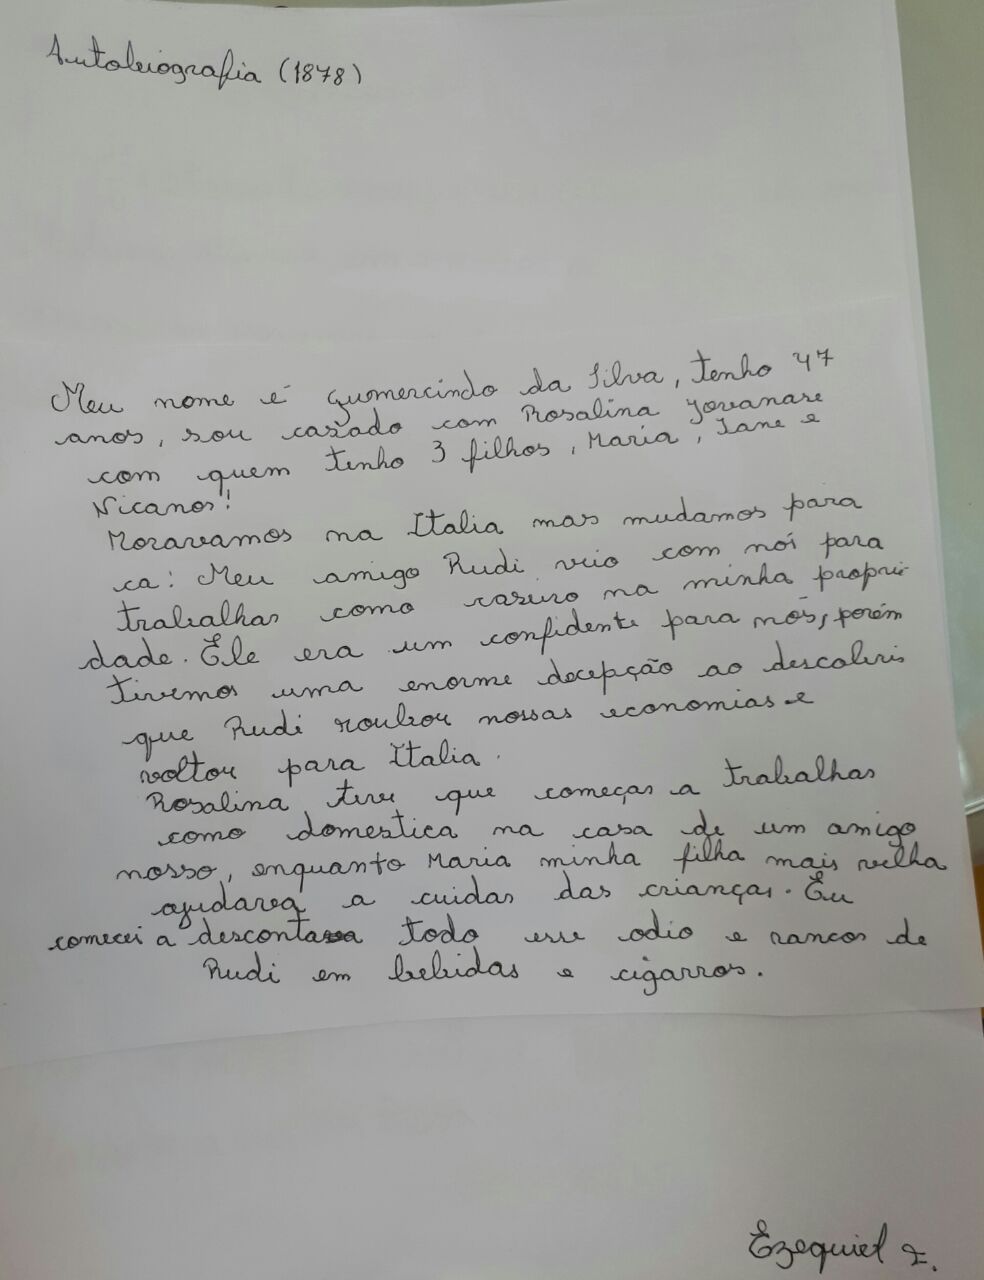 Autobiografia (1878)
Meu nome é gumercindo da Silva, tenho 47
anos, sou casado com Rosalina Jovanare
com quem tenho 3 filhos, Maria, Jane e
Nicanor!
Moravamos na Italia mas mudamos para
ca! Meu amigo Rudi veio com nós para
trabalhar como caseiro na minha proprie-
dade. Ele era um confidente para nós, porém
tivemos uma enorme decepção ao descobrir
que Rudi roubou nossas economias e
voltou para Italia.
Rosalina teve que começar a trabalhar
como domestica na casa de um amigo
nosso, enquanto Maria minha filha mais velha
ajudava a cuidar das crianças. Eu
comecei a descontava todo esse odio e rancor de
Rudi em bebidas e cigarros.
Ezequiel F.